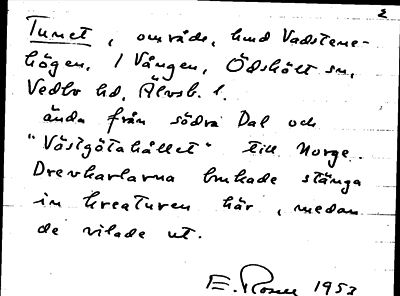 2
Tunet, område, hmd Vadstene-
högen, i Vången, Ödskölt sn,
Vedbo hd, Älvsb. l.
ända från södra Dal och
"Västgötahållet" till Norge.
Drevkarlarna brukade stänga
in kreaturen här, medan
de vilade ut.
E. Rosen 1953